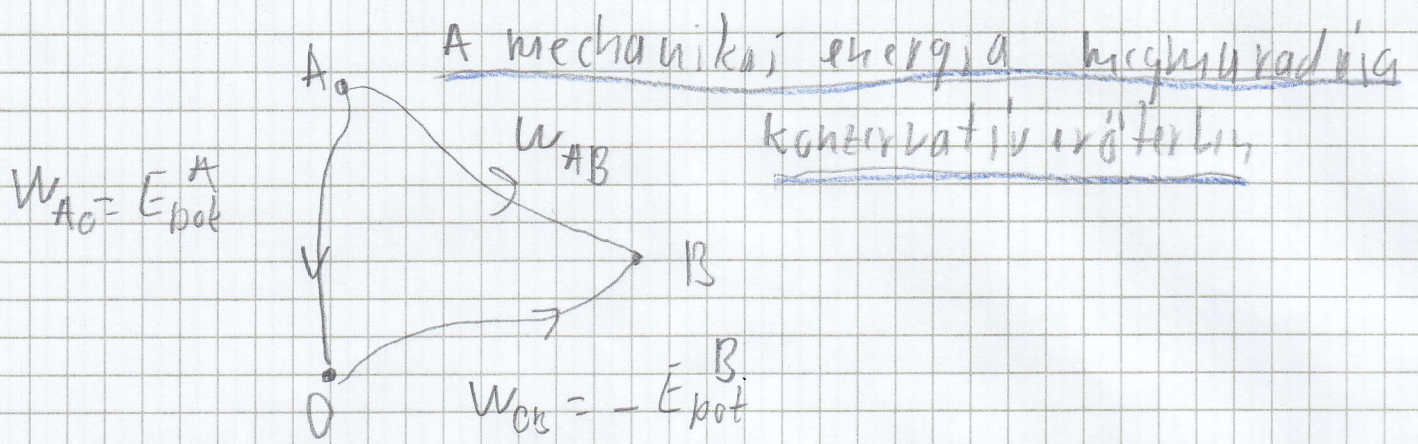 A mechanikai energia megmaradása
konzervatív erőtérben
A
W_AB
W_AO = E_pot^A
B
O
W_OB = - E_pot^B